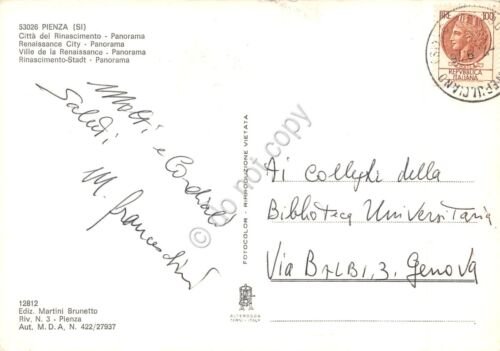 53026 PIENZA (SI)
Città del Rinascimento - Panorama
Renaissance City - Panorama
Ville de la Renaissance - Panorama
Rinascimento-Stadt - Panorama
LIRE 100
REPVBBLICA
ITALIANA
Molti e Cordiali
Saluti
M. Franceschini
Ai Colleghi della
Biblioteca Universitaria
Via BALBI, 3. Genova
FOTOCOLOR - RIPRODUZIONE VIETATA
do not copy
12812
Ediz. Martini Brunetto
Riv. N. 3 - Pienza
Aut. M. D. A. N. 422/27937
ALTEROCCA
TERNI - ITALY